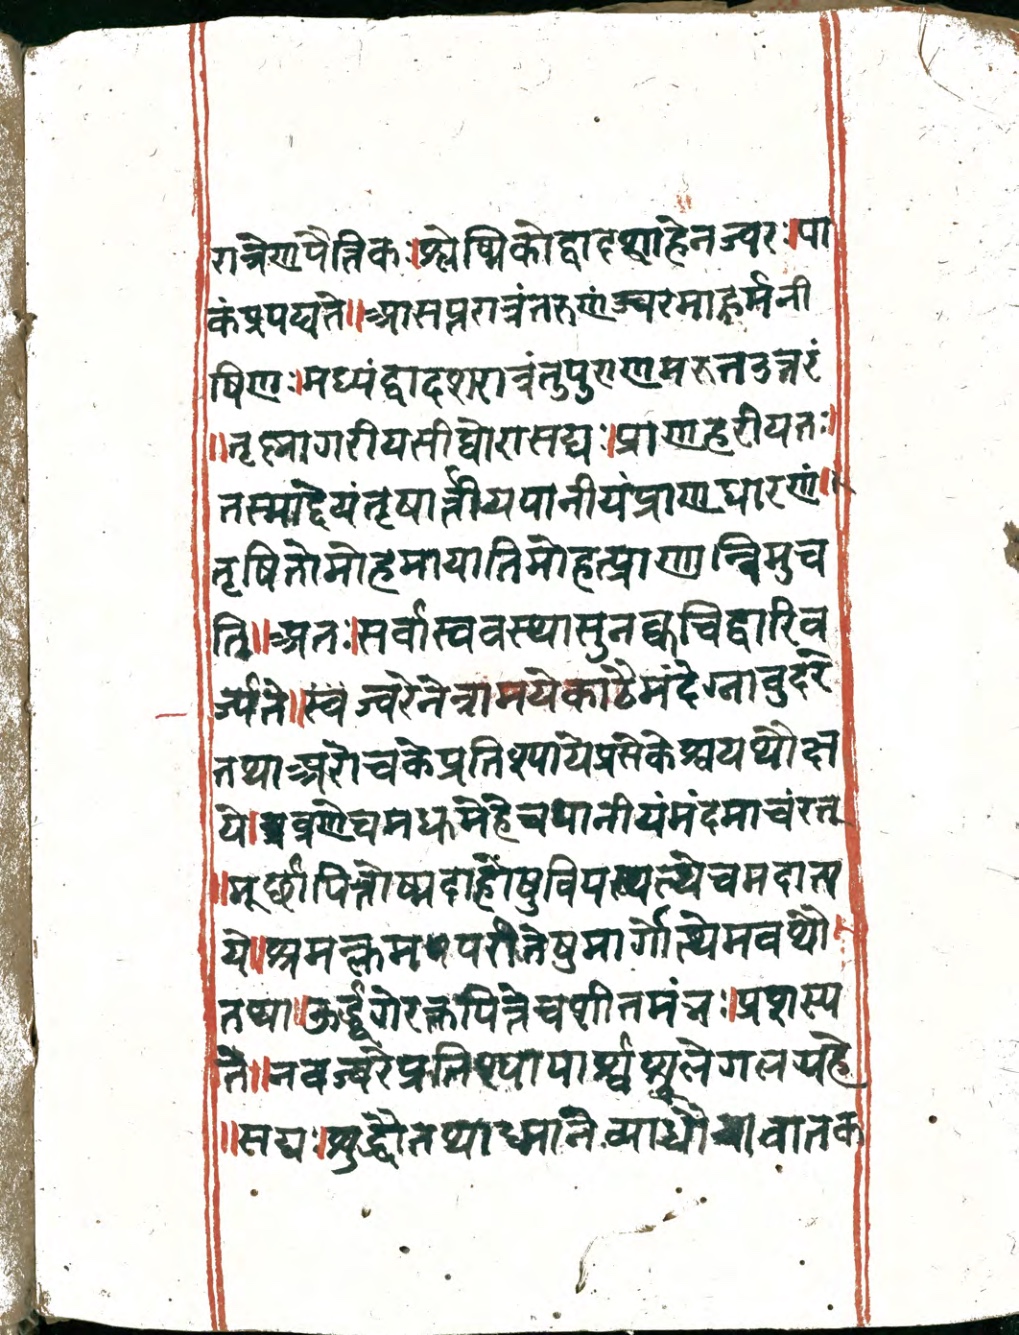 रात्रेणपैत्तिकः।श्लेष्मिकोद्वादशाहेनज्वरः।पा
कंप्रपद्यते॥आसप्तरात्रंतरुणंज्वरमाहुर्मनी
षिणः।मध्यंद्वादशरात्रंतुपुराणमरुतउत्तरं
॥तृष्नागरीयसीघोरासद्यः।प्राणहरीयतः॥
तस्माद्देयंतृषार्त्तायपानीयंप्राणधारणं॥
तृषितोमोहमायातिमोहत्प्राणान्विमुच
ति॥अतः।सर्वास्ववस्थासुनक्वचिद्वारिव
र्ज्यते॥स्वज्वरेनेत्रामयेकोठेमंदेग्नावुदरे
तथाअरोचकेप्रतिश्यायेप्रसेकेश्वयथौक्ष
ये।व्रणेचमधुमेहेचपानीयंमंदमाचंरत्
॥मूर्छापित्तोष्मदाहेषुविषमदात्य
ये॥श्रमक्लमपरीतेषुमार्गोत्थेमवथौ
तथा॥ऊर्द्ध्वगेरक्तपित्तेचशीतमंत्रः।प्रशस्य
ते॥नवज्वरेप्रतिश्यापार्श्वशूलेगलग्रहे
॥सद्यः।शुद्धौतथाध्मानेव्याधौवातक